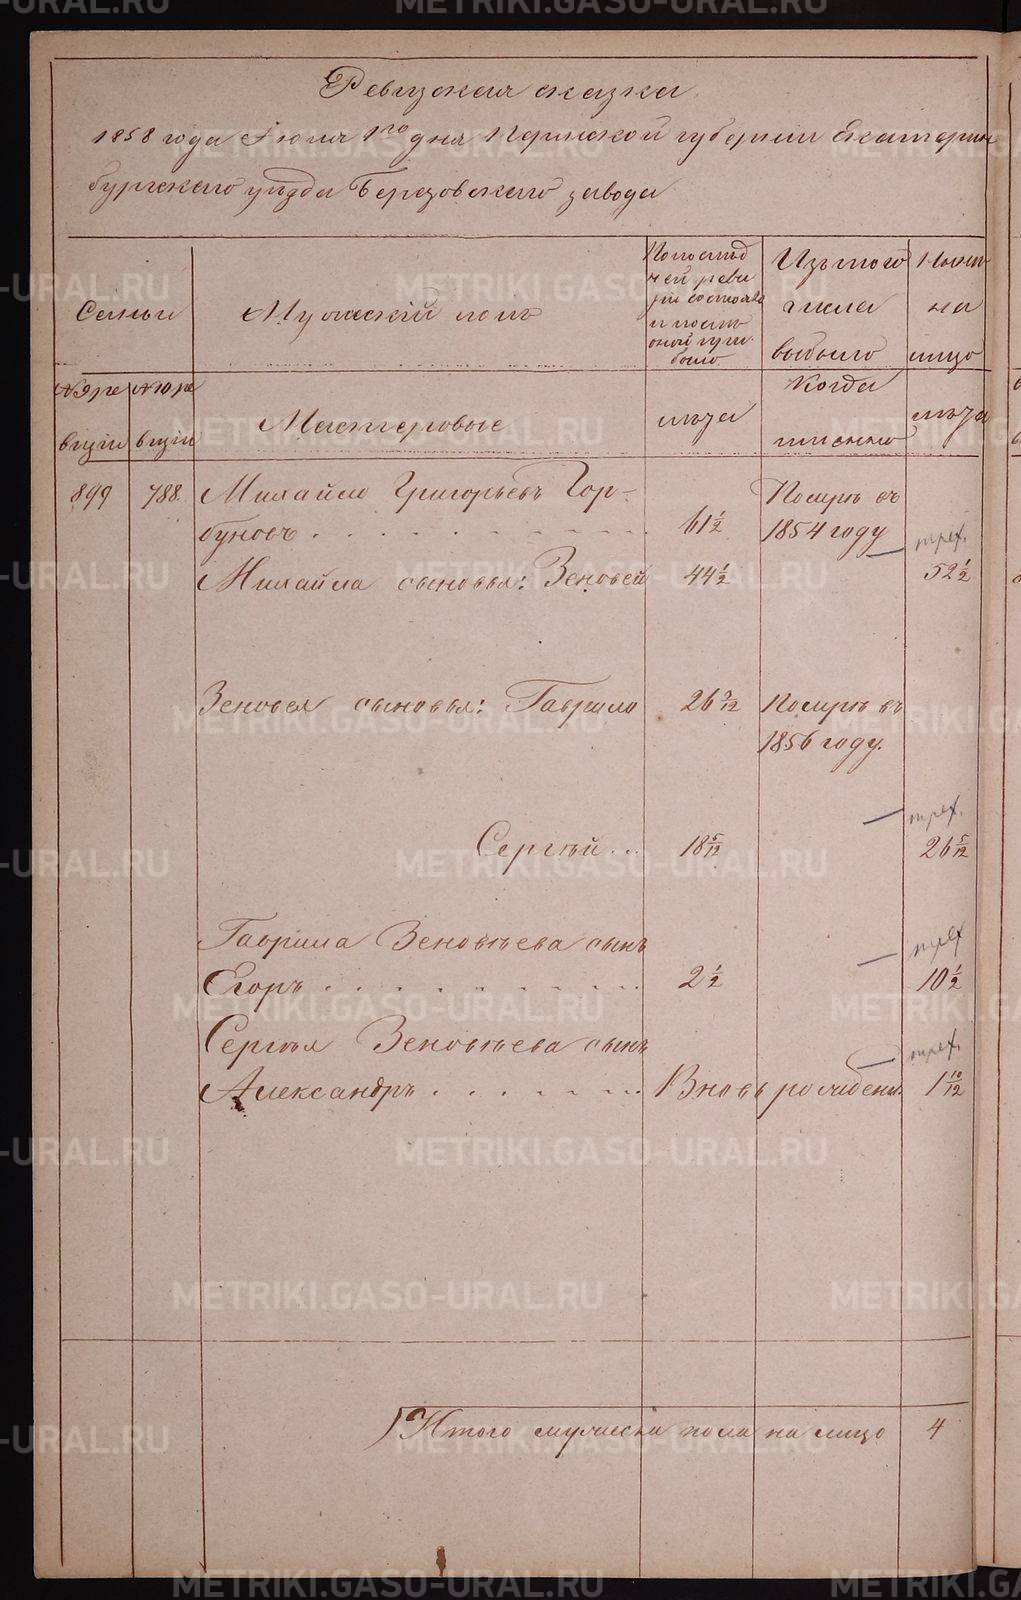 Ревизская сказка
1858 года Июня 1го дня Пермской губернии Екатерин
бургскаго уезда Березовскаго завода
Семьи
Мужеский полъ
По послед
ней реви
зіи состояло
и после
оной прибыло
Изъ того
числа
выбыло
Ныне
на
лицо
№ 9 ре
визіи
№ 10 ре
визіи
Мастеровые
лѣта
когда
именно
лѣта
899
788.
Михайло Григорьевъ Гор-
буновъ
61 1/2
Помре въ
1854 году
Михайла сыновья: Зеновей
44 1/2
прех.
52 1/2
Зеновея сыновья: Гаврило
26 3/12
Помре въ
1856 году.
Сергѣй
18 5/12
прех.
26 5/12
Гаврила Зеновьева сынъ
Егоръ
2 1/2
прех
10 1/2
Сергѣя Зеновьева сынъ
Александръ
Вновь рожденъ
прех.
1 10/12
Итого мужеска пола на лицо
4
METRIKI.GASO-URAL.RU